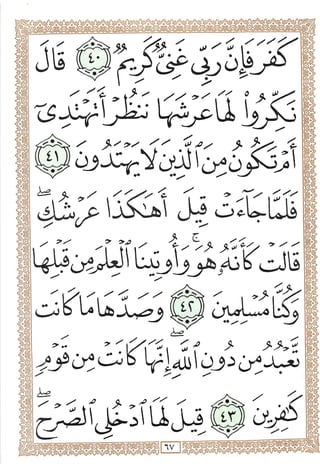 كَفَرَ فَإِنَّ رَبِّى غَنِىٌّ كَرِيمٌ ٤٠ قَالَ
نَكِّرُوا۟ لَهَا عَرْشَهَا نَنظُرْ أَتَهْتَدِىٓ
أَمْ تَكُونُ مِنَ ٱلَّذِينَ لَا يَهْتَدُونَ ٤١
فَلَمَّا جَآءَتْ قِيلَ أَهَٰكَذَا عَرْشُكِ ۖ
قَالَتْ كَأَنَّهُۥ هُوَ ۚ وَأُوتِينَا ٱلْعِلْمَ مِن قَبْلِهَا
وَكُنَّا مُسْلِمِينَ ٤٢ وَصَدَّهَا مَا كَانَت
تَّعْبُدُ مِن دُونِ ٱللَّهِ ۖ إِنَّهَا كَانَتْ مِن قَوْمٍ
كَٰفِرِينَ ٤٣ قِيلَ لَهَا ٱدْخُلِى ٱلصَّرْحَ ۖ
٦٧